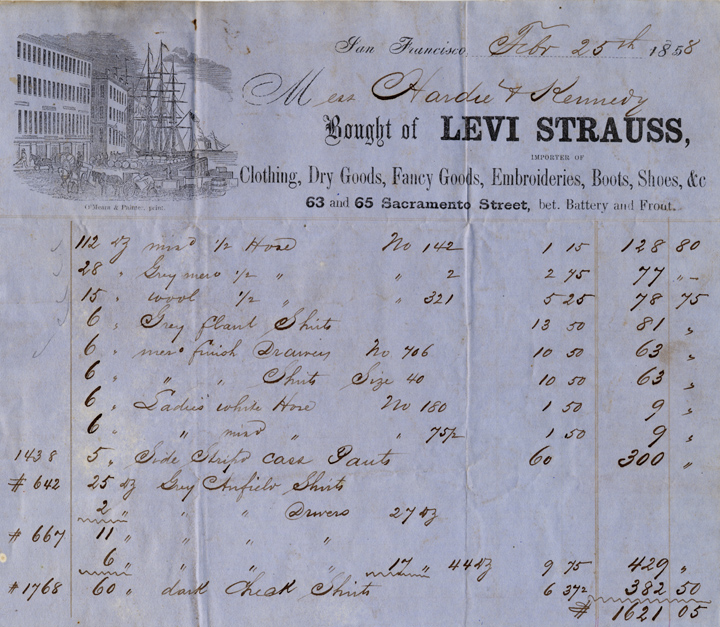 San Francisco, Febr 25th 1858
Mess Hardie & Kennedy
Bought of LEVI STRAUSS,
IMPORTER OF
Clothing, Dry Goods, Fancy Goods, Embroideries, Boots, Shoes, &c
63 and 65 Sacramento Street, bet. Battery and Front.
O'Meara & Painter, print.
112 dz mixd 1/2 Hose No 142 1 15 128 80
28 " Grey mero 1/2 " " 2 2 75 77 "
15 " wool 1/2 " " 321 5 25 78 75
6 " Grey flanl Shirts 13 50 81 "
6 " mero finish Drawers No 706 10 50 63 "
6 " " " Shirts Size 40 10 50 63 "
6 " Ladies white Hose No 180 1 50 9 "
6 " " mixd " " 75/2 1 50 9 "
1438 5 " Side Stripd cass Pants 60 300 "
# 642 25 dz Grey Shirts
2 " " " Drwers 27 dz
# 667 11 " " " "
6 " " " " 17 " 44 dz 9 75 429 "
# 1768 60 " dark Cheak Shirts 6 37 1/2 382 50
# 1621 05